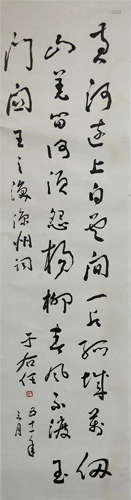 黃河遠上白雲間一片孤城萬仞
山羌笛何須怨楊柳春風不渡玉
門關 王之渙涼州詞
于右任
五十一年
三月